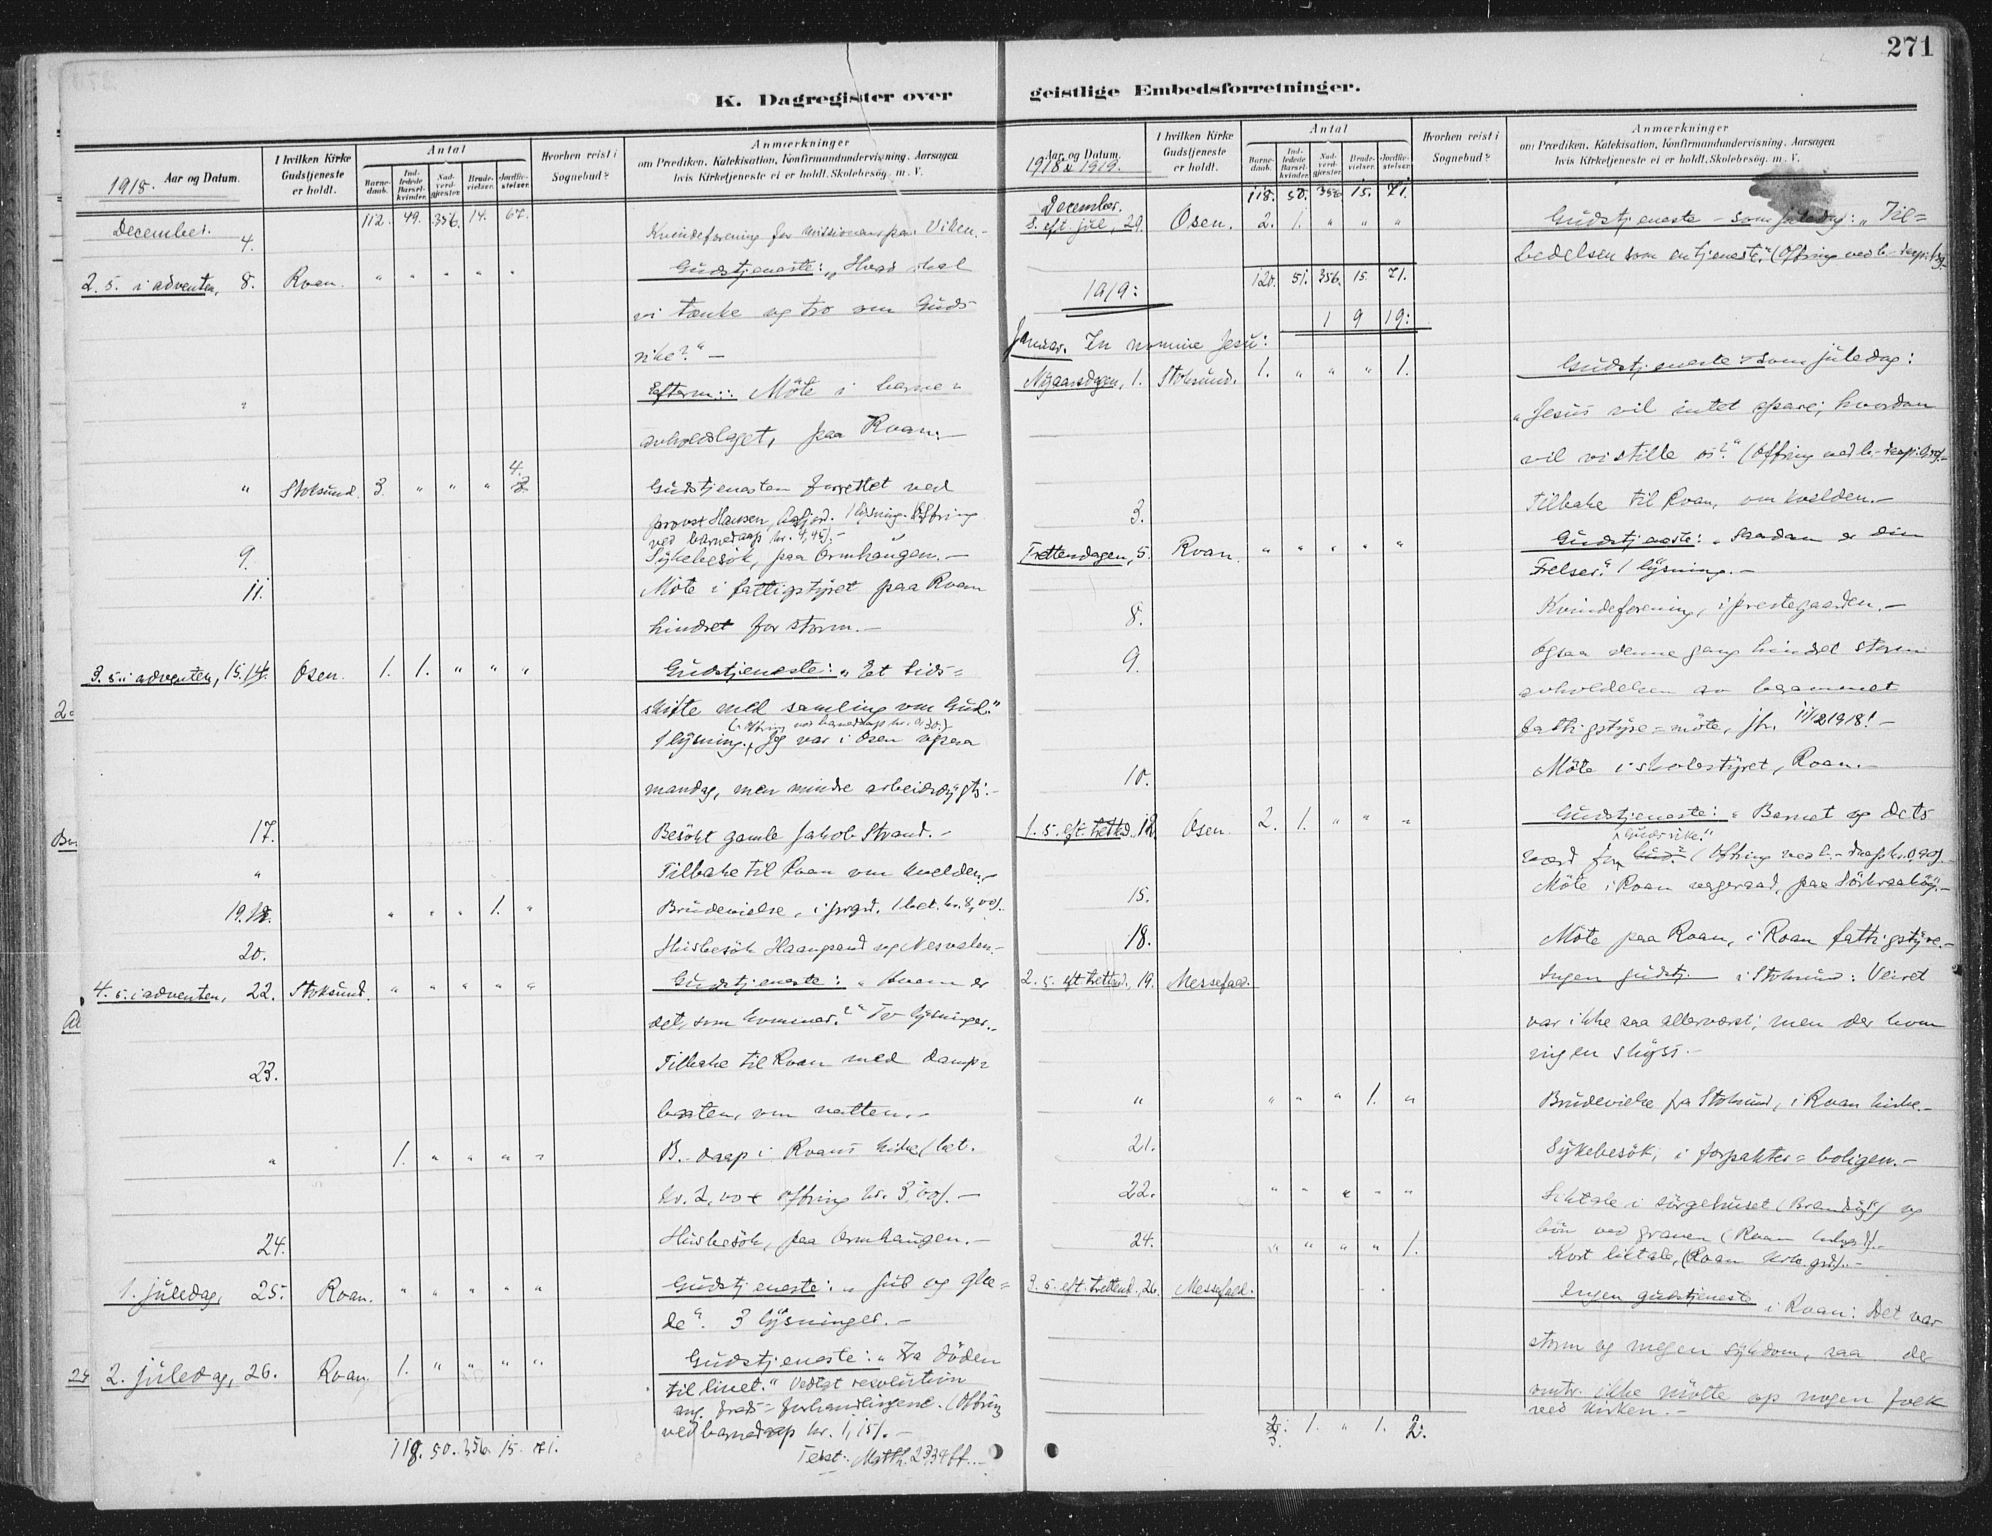 271
K. Dagregister over
1918. Aar og Datum.
I hvilken Kirke Gudstjeneste er holdt.
Antal
Barne-daab.
Ind-ledede Barsel-kvinder.
Nad-verd-gjester.
Brude-vielser.
Jordfæ-stelser.
Hvorhen reist i Sognebud?
Anmærkninger
om Prædiken, Katekisation, Konfirmandundervisning, Aarsagen
hvis Kirketjeneste ei er holdt, Skolebesøg m. V.
December. 112. 49. 356. 14. 67.
4. Kvindeforening for missionen paa Viken.-
2. s. i adventen, 8. Roan. " " " " " Gudstjeneste: "Hvad skal
vi tænke og tro om Guds
rike?" -
" Efterm.: Möte i barne=
avholdslaget, paa Roan.-
" Stoksund. 3. " " " 4. Gudstjenesten forrettet ved
provst Hansen, Aafjord. 1 lysning. Offring
ved barnedaap kr. 4,45).-
9. Sykebesök, paa Ormhaugen.-
11. Möte i fattigstyret paa Roan
hindret for storm.-
3. s. i adventen, 15. 14. Osen. 1. 1. " " " Gudstjeneste: "Et tids=
skifte med samling om Gud."
(Offring ved barnedaap kr. 0,30.)
1 lysning. Jeg var i Osen ogsaa
mandag, men mindre arbeidsdygtig.-
17. Besökt gamle Jakob Strand.-
" Tilbake til Roan om kvelden.-
19. 18. " " " 1. " Brudevielse, i prgrd. 1 bet. kr. 8,00).
20. Husbesök Haangsand og Nesvalen.-
4. s. i adventen, 22. Stoksund. " " " " " Gudstjeneste: "Hvem er
det, som kommer?" To lysninger.-
23. Tilbake til Roan med damp=
baaten, om natten.-
" 1. " " " " B.-daap i Roans kirke (bet.
kr. 2,00 + offring kr. 3,00).-
24. Husbesök, paa Ormhaugen.-
1. juledag, 25. Roan. " " " " " Gudstjeneste: "Jul og glæ=
de". 3 lysninger.-
2. juledag, 26. Roan. 1. " " " " Gudstjeneste: "Fra döden
til livet." Vedtat resolution
ang. freds=forhandlingene. (Offring
ved barnedaap kr. 1,15).-
118. 50. 356. 15. 71. Tekst: Matth. 23,34 ff.-
geistlige Embedsforretninger.
Aar og Datum.
1918 & 1919.
I hvilken Kirke Gudstjeneste er holdt.
Antal
Barne-daab.
Ind-ledede Barsel-kvinder.
Nad-verd-gjester.
Brude-vielser.
Jordfæ-stelser.
Hvorhen reist i Sognebud?
Anmærkninger
om Prædiken, Katekisation, Konfirmandundervisning, Aarsagen
hvis Kirketjeneste ei er holdt, Skolebesög, m. V.
December. 118. 50. 356. 15. 71.
S. eft. jul, 29. Osen. 2. 1. " " " Gudstjeneste - som juledag: "Til=
bedelsen som en tjeneste." (Offring ved b-daap:
1919: 120. 51. 356. 15. 71.
1 9 19:
Januar. In nomine Jesu:
Nyaarsdagen, 1. Stoksund. 1. " " " 1. Gudstjeneste - som juledag:
"Jesus vil intet spare; hvordan
vil vi stille os?" (Offring ved b-daap:
3. Tilbake til Roan, om kvelden.-
Trettendagen, 5. Roan. " " " " " Gudstjeneste: "Saadan er din
Frelser." 1 lysning.-
8. Kvindeforening, i prestegaarden.-
9. Ogsaa denne gang hindret storm
avholdelsen av berammet
fattigstyre=möte, jfr. 11/12 1918!-
10. Möte i skolestyret, Roan.-
1. s. eft. trettd., 12. Osen. 2. 1. " " " Gudstjeneste: "Barnet og dets
Guds rike."
værd for Gud." (Offring ved b.-daap kr. 0,90).
15. Möte i Roan vergeraad, paa Sörkraakøy.-
18. Möte paa Roan, i Roan fattigstyre.-
2. s. eft. trettend., 19. Messefald. Ingen gudstj. i Stoksund: Veiret
var ikke saa allerværst; men der kom
ingen skyss.-
" " " " 1. " Brudevielse fra Stoksund, i Roan kirke.-
21. Sykebesök, i forpakter=boligen.-
22. " " " " " Liktale i sörgehuset (Brandsöy) og
bön ved graven (Roan
24. " " " " 1. Kort liktale, (Roan kirkegrd).-
3. s. eft. trettend., 26. Messefald. Ingen gudstjeneste i Roan: Det var
storm og megen sykdom, saa der
omtr. ikke mötte op nogen folk
ved kirken.-
2. 1. " 1. 2.
3.